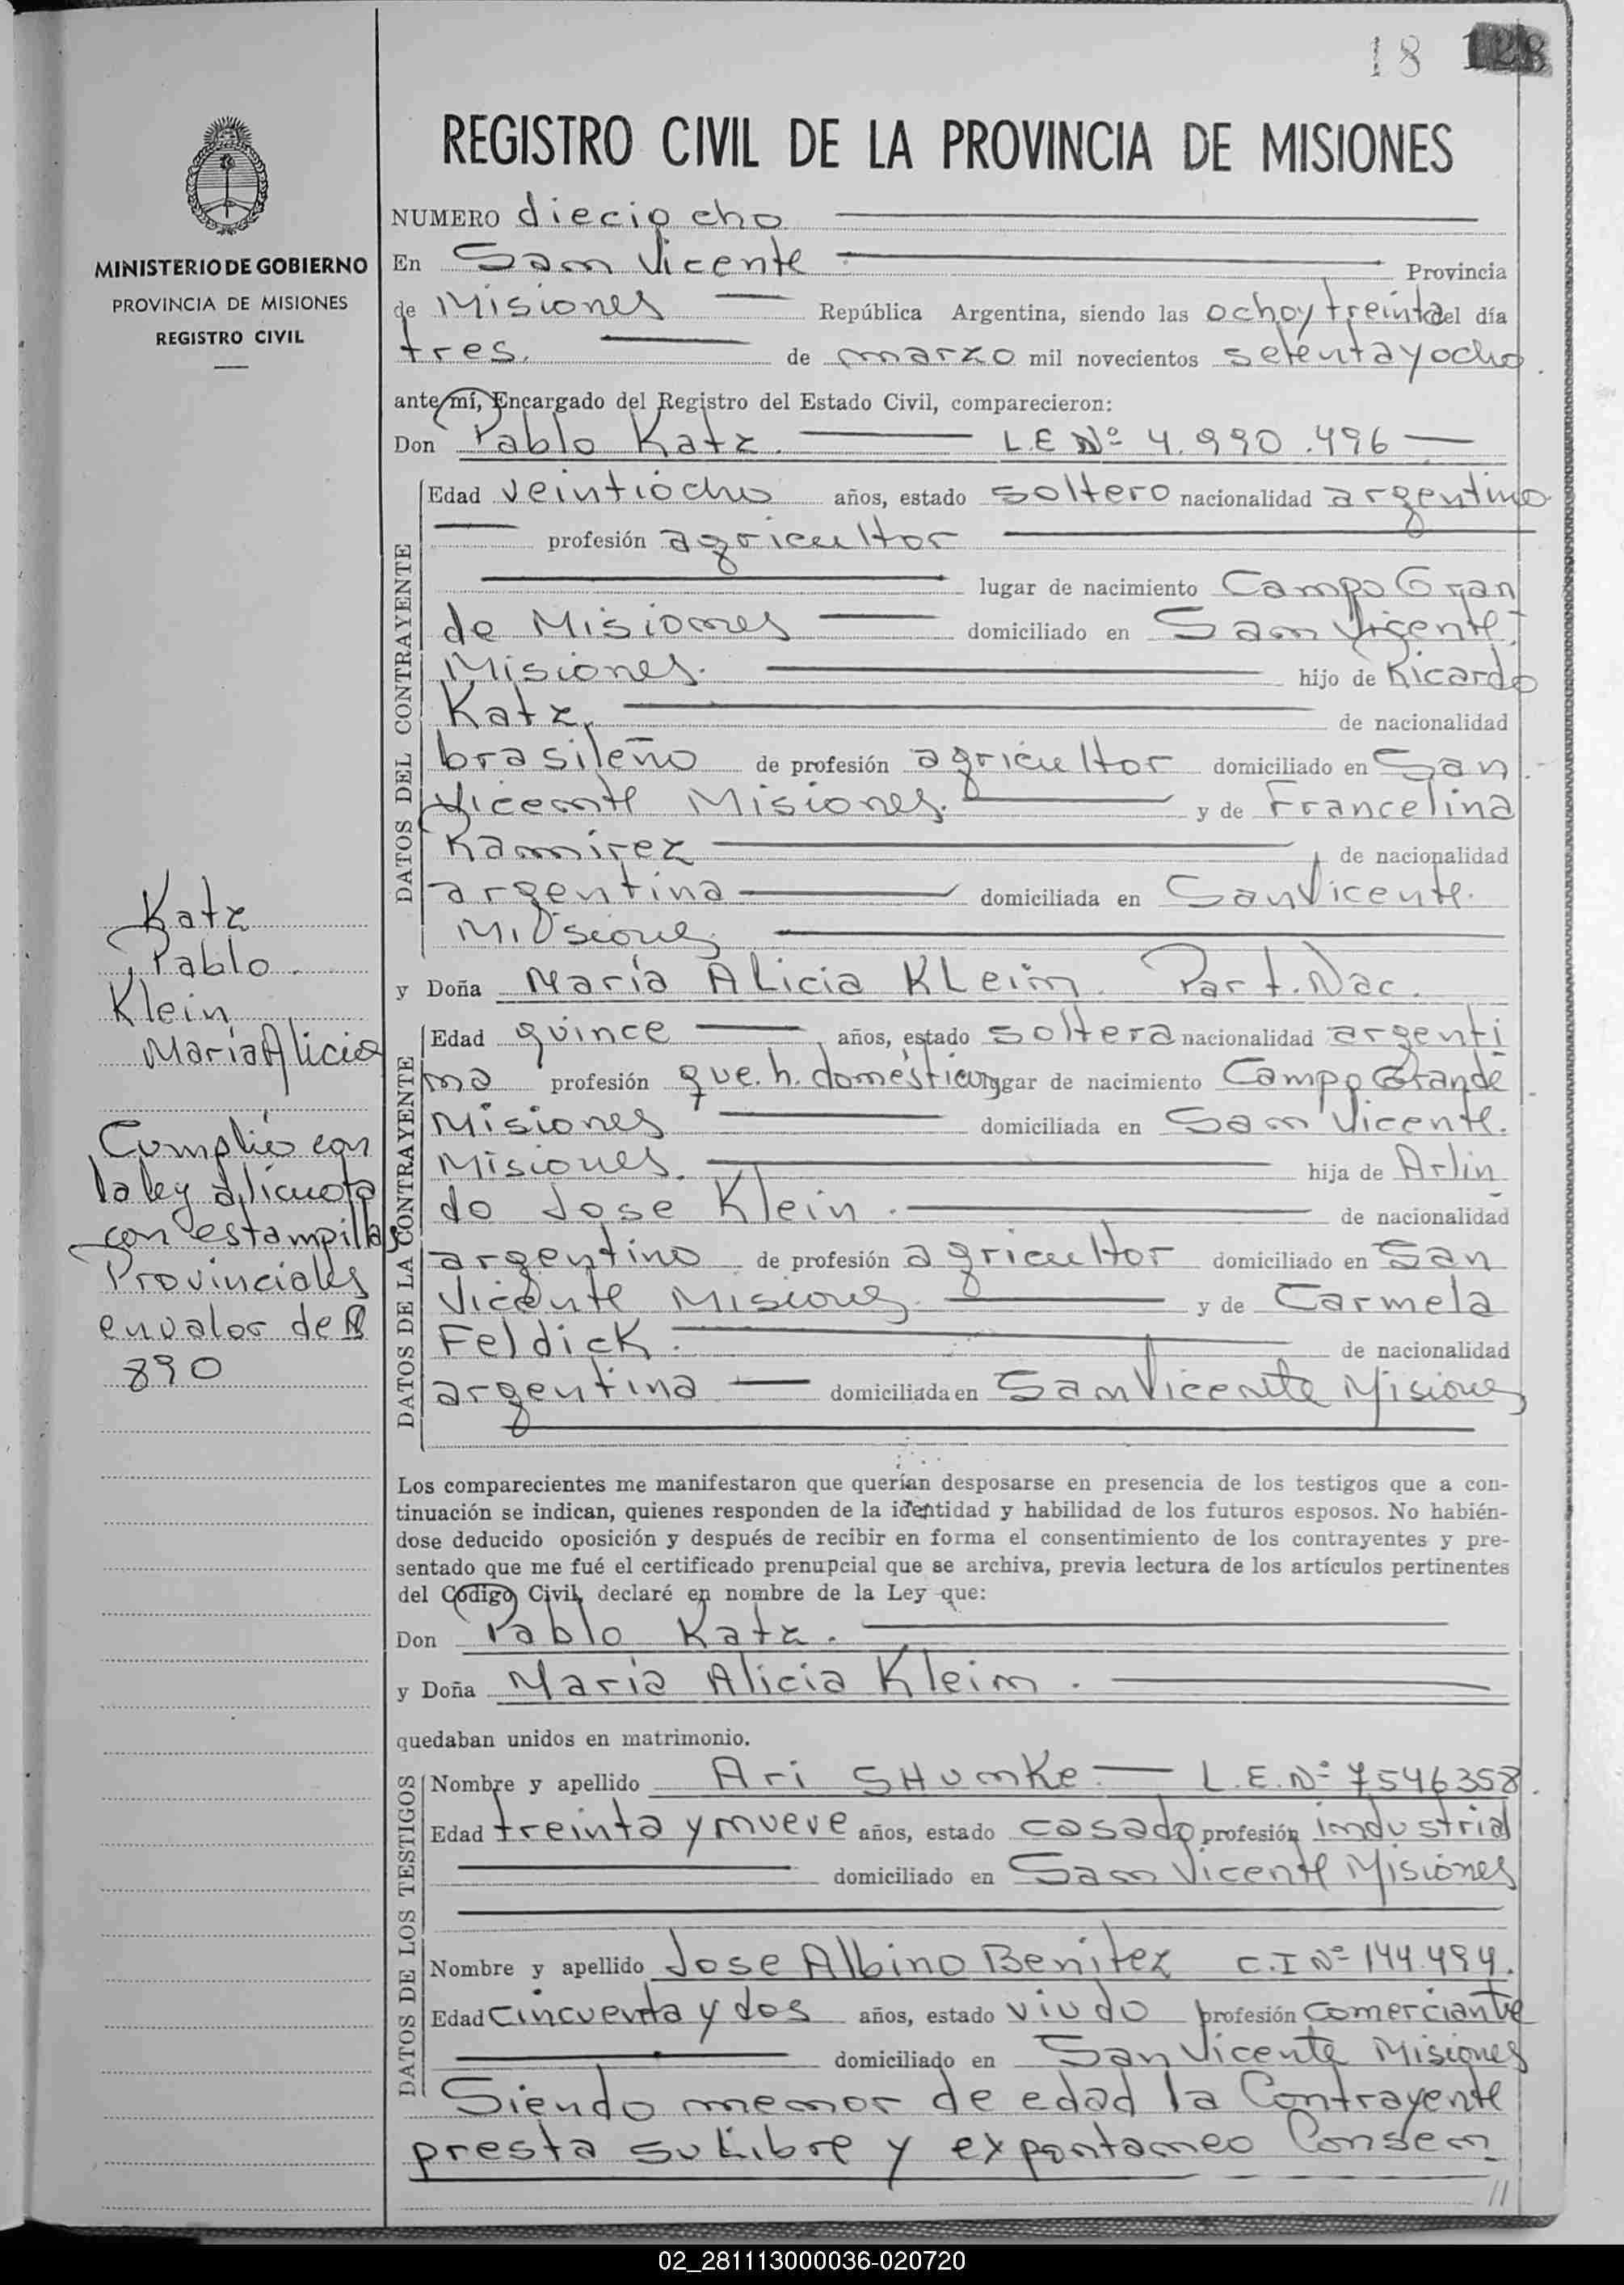 18 128
REGISTRO CIVIL DE LA PROVINCIA DE MISIONES
MINISTERIO DE GOBIERNO
PROVINCIA DE MISIONES
REGISTRO CIVIL
NUMERO dieciocho
En San Vicente Provincia
de Misiones República Argentina, siendo las ocho y treinta del día
tres. de marzo mil novecientos setenta y ocho
ante mí, Encargado del Registro del Estado Civil, comparecieron:
Don Pablo Katz. L.E Nº 4.990.496
DATOS DEL CONTRAYENTE
Edad veintiocho años, estado soltero nacionalidad argentino
profesión agricultor
lugar de nacimiento Campo Gran
de Misiones domiciliado en San Vicente.
Misiones. hijo de Ricardo
Katz, de nacionalidad
brasileño de profesión agricultor domiciliado en San
Vicente Misiones. y de Francelina
Ramirez de nacionalidad
argentina domiciliada en San Vicente.
Misiones
y Doña María Alicia Klein. Part. Nac.
DATOS DE LA CONTRAYENTE
Edad quince años, estado soltera nacionalidad argenti
na profesión que. h. domésticos lugar de nacimiento Campo Grande
Misiones domiciliada en San Vicente.
Misiones. hija de Arlin
do Jose Klein. de nacionalidad
argentino de profesión agricultor domiciliado en San
Vicente Misiones y de Carmela
Feldick. de nacionalidad
argentina domiciliada en San Vicente Misiones
Katz
Pablo.
Klein,
María Alicia
Cumplió con
la ley alicuota
con estampillas
Provinciales
en valor de $
890
Los comparecientes me manifestaron que querían desposarse en presencia de los testigos que a con-
tinuación se indican, quienes responden de la identidad y habilidad de los futuros esposos. No habién-
dose deducido oposición y después de recibir en forma el consentimiento de los contrayentes y pre-
sentado que me fué el certificado prenupcial que se archiva, previa lectura de los artículos pertinentes
del Código Civil, declaré en nombre de la Ley que:
Don Pablo Katz.
y Doña María Alicia Klein.
quedaban unidos en matrimonio.
DATOS DE LOS TESTIGOS
Nombre y apellido Ari SHumKe. L.E.Nº 7546358
Edad treinta y nueve años, estado casado profesión industrial
domiciliado en San Vicente Misiones
Nombre y apellido Jose Albino Benitez C.I Nº 144.494.
Edad cincuenta y dos años, estado viudo profesión comerciante
domiciliado en San Vicente Misiones
Siendo menor de edad la Contrayente
presta su libre y expontaneo Consen
//
02_281113000036-020720